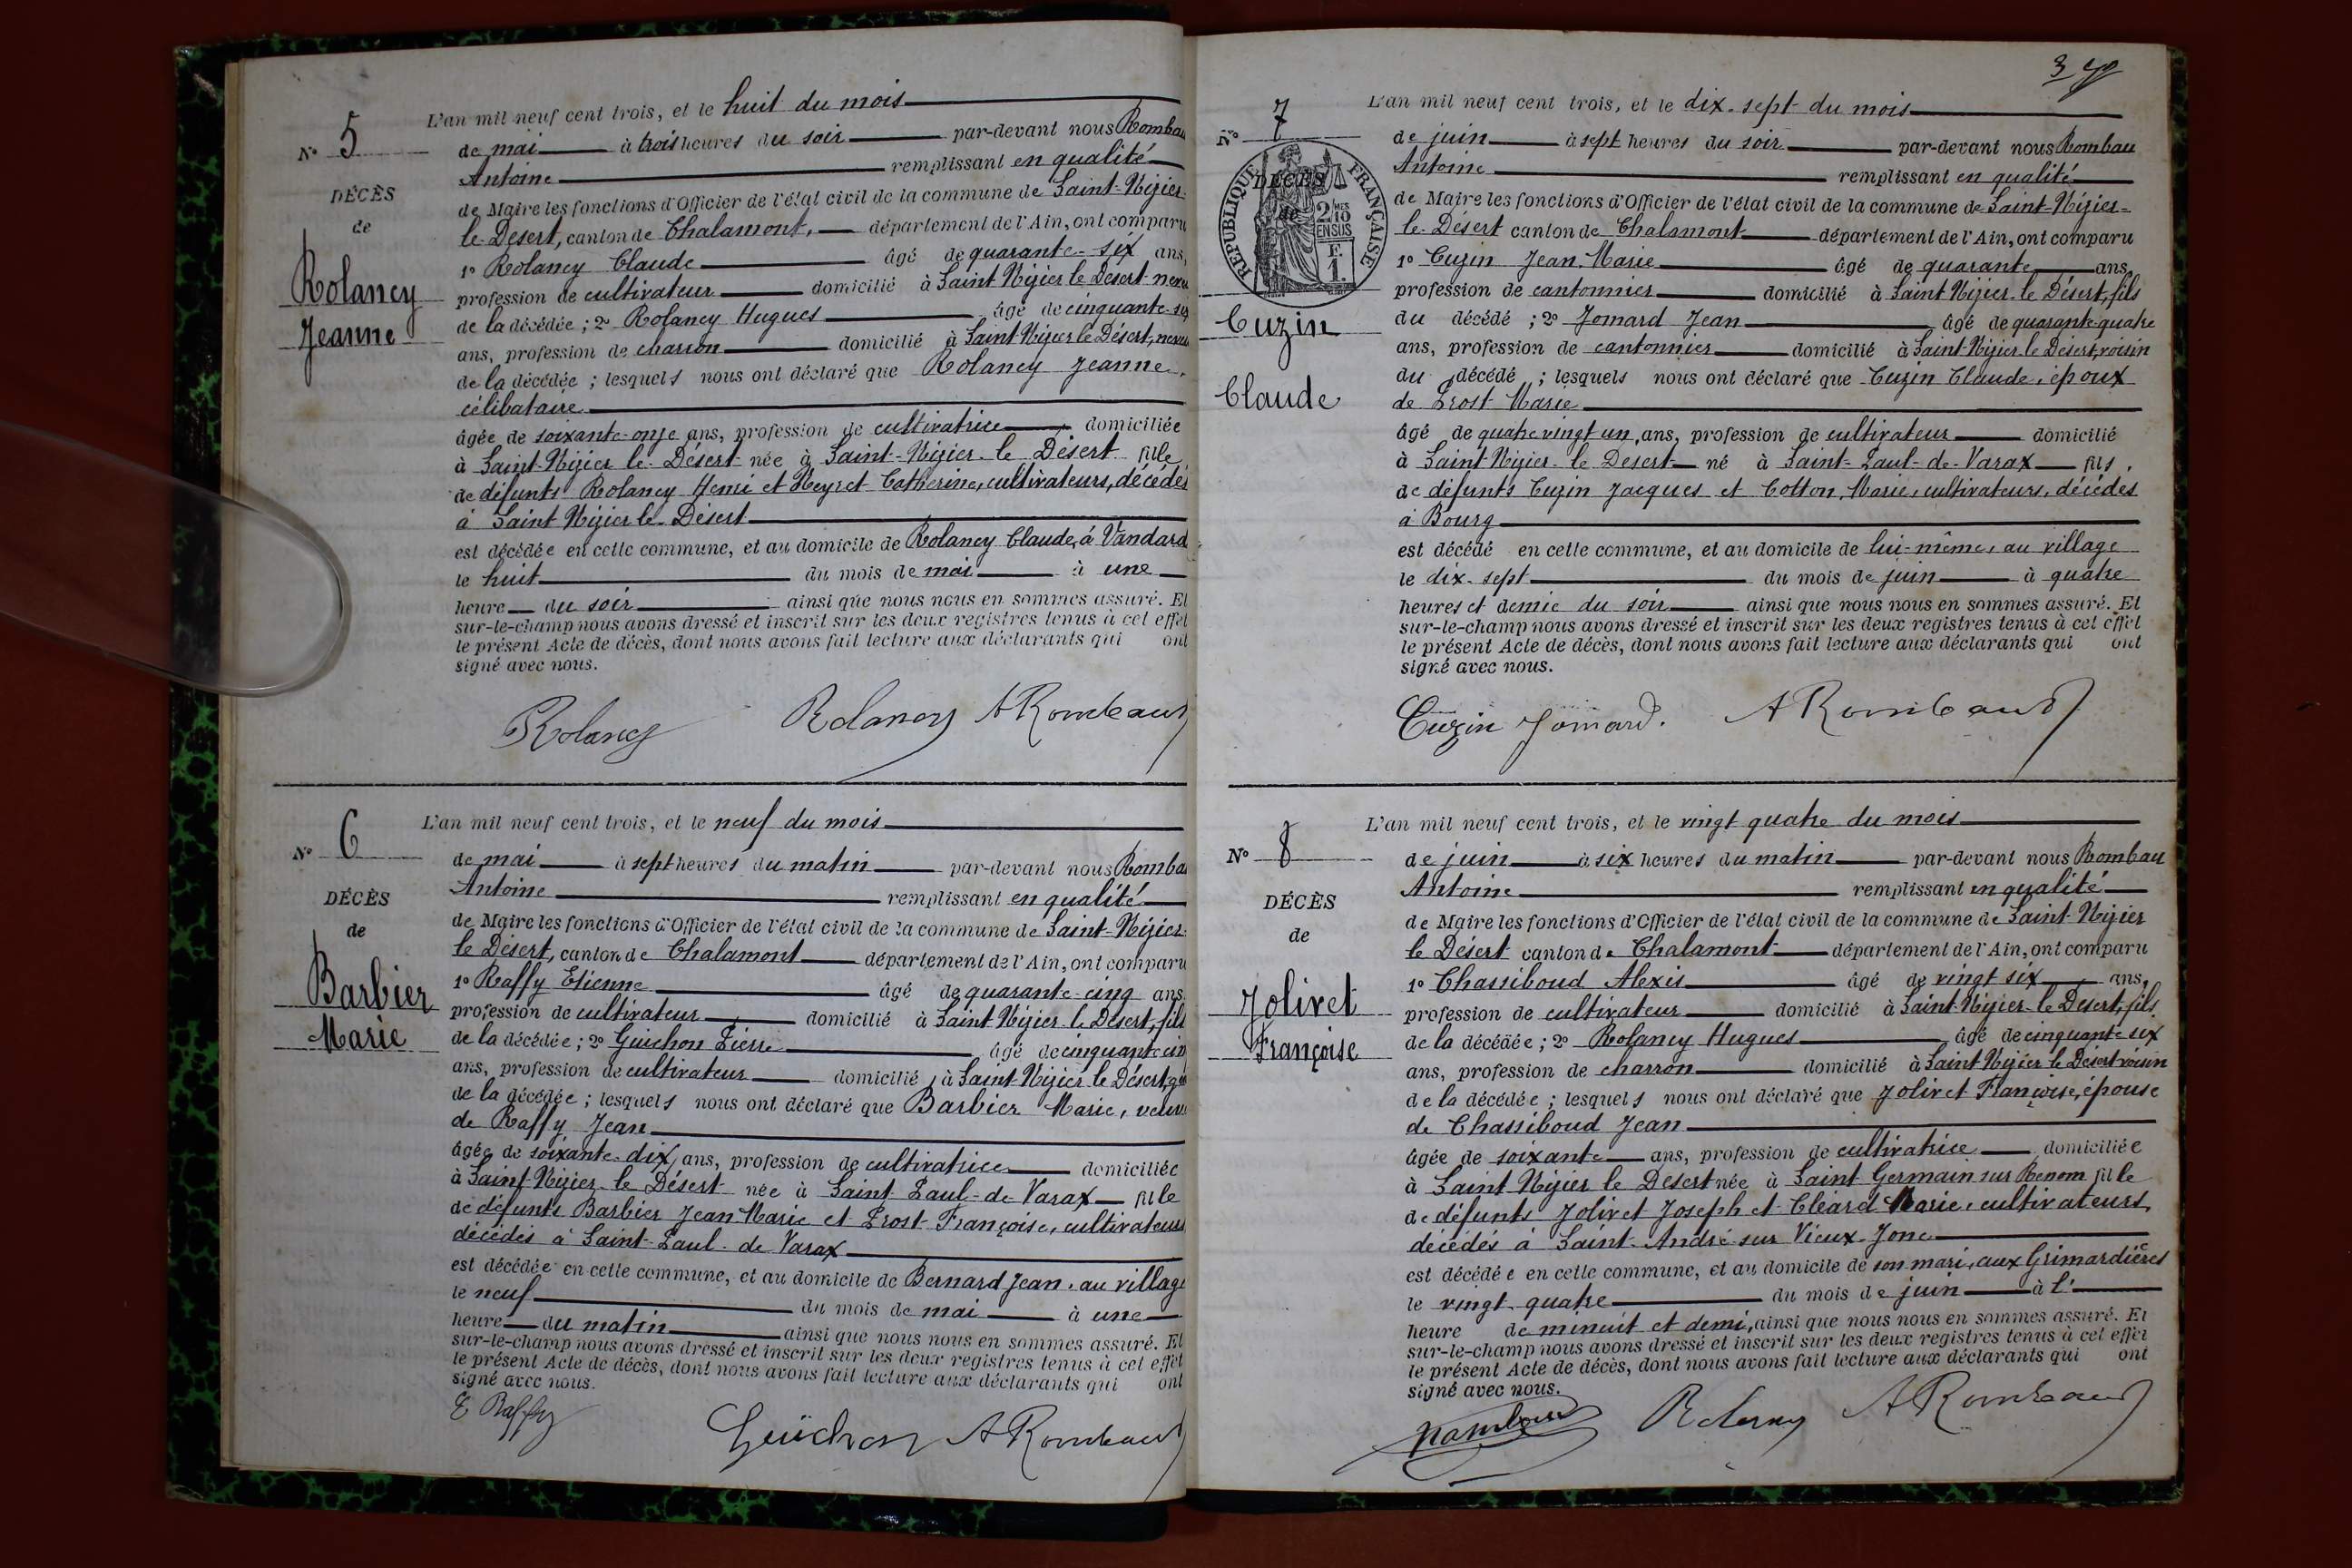 L'an mil neuf cent trois, et le huit du mois
N° 5
de mai à trois heures du soir par-devant nous Rombau
Antoine remplissant en qualité
DÉCÈS
de Maire les fonctions d'Officier de l'état civil de la commune de Saint-Nizier-
de
le-Désert, canton de Chalamont, département de l'Ain, ont comparu
1° Rolancy Claude âgé de quarante-six ans,
Rolancy
profession de cultivateur domicilié à Saint Nizier le Désert neveu
Jeanne
de la décédée ; 2° Rolancy Hugues âgé de cinquante-six
ans, profession de charron domicilié à Saint Nizier le Désert, neveu
de la décédée ; lesquels nous ont déclaré que Rolancy Jeanne,
célibataire
âgée de soixante-onze ans, profession de cultivatrice domiciliée
à Saint-Nizier le-Désert née à Saint-Nizier-le Désert fille
de défunts Rolancy Henri et Neyret Catherine, cultivateurs, décédés
à Saint Nizier le-Désert
est décédée en cette commune, et au domicile de Rolancy Claude, à Vandard
le huit du mois de mai à une
heure du soir ainsi que nous nous en sommes assuré. Et
sur-le-champ nous avons dressé et inscrit sur les deux registres tenus à cet effet
le présent Acte de décès, dont nous avons fait lecture aux déclarants qui ont
signé avec nous.
Rolancy Rolancy ARombaud
L'an mil neuf cent trois, et le neuf du mois
N° 6
de mai à sept heures du matin par-devant nous Romba
Antoine remplissant en qualité
DÉCÈS
de Maire les fonctions d'Officier de l'état civil de la commune de Saint-Nizier-
de
le Désert, canton de Chalamont département de l'Ain, ont comparu
1° Raffy Etienne âgé de quarante-cinq ans
Barbier
profession de cultivateur domicilié à Saint Nizier le Désert, fils
Marie
de la décédée ; 2° Guichon Pierre âgé de cinquante cin
ans, profession de cultivateur domicilié à Saint-Nizier le Désert, ge
de la décédée ; lesquels nous ont déclaré que Barbier Marie, veuve
de Raffy Jean
âgée de soixante-dix ans, profession de cultivatrice domiciliée
à Saint-Nizier-le Désert née à Saint Paul-de-Varax fille
de défunts Barbier Jean-Marie et Prost Françoise, cultivateurs
décédés à Saint-Paul-de Varax
est décédée en cette commune, et au domicile de Bernard Jean, au village
le neuf du mois de mai à une
heure du matin ainsi que nous nous en sommes assuré. Et
sur-le-champ nous avons dressé et inscrit sur les deux registres tenus à cet effet
le présent Acte de décès, dont nous avons fait lecture aux déclarants qui ont
signé avec nous.
E Raffy
Guichon ARombaud
3
L'an mil neuf cent trois, et le dix-sept du mois
N° 7
de juin à sept heures du soir par-devant nous Rombau
Antoine remplissant en qualité
DÉCÈS
de
RÉPUBLIQUE FRANÇAISE
2/10 MES
EN SUS
F.
1.
de Maire les fonctions d'Officier de l'état civil de la commune de Saint-Nizier-
le-Désert canton de Chalamont département de l'Ain, ont comparu
1° Cuzin Jean-Marie âgé de quarante ans,
profession de cantonnier domicilié à Saint Nizier-le Désert, fils
Cuzin
du décédé ; 2° Jomard Jean âgé de quarante-quatre
ans, profession de cantonnier domicilié à Saint-Nizier-le Désert, voisin
Claude
du décédé ; lesquels nous ont déclaré que Cuzin Claude, époux
de Prost Marie
âgé de quatre vingt un, ans, profession de cultivateur domicilié
à Saint-Nizier-le Désert né à Saint-Paul-de-Varax fils
de défunts Cuzin Jacques et Cotton, Marie, cultivateurs, décédés
à Bourg
est décédé en cette commune, et au domicile de lui-même, au village
le dix-sept du mois de juin à quatre
heures et demie du soir ainsi que nous nous en sommes assuré. Et
sur-le-champ nous avons dressé et inscrit sur les deux registres tenus à cet effet
le présent Acte de décès, dont nous avons fait lecture aux déclarants qui ont
signé avec nous.
Cuzin Jomard. ARombaud
L'an mil neuf cent trois, et le vingt quatre du mois
N° 8
de juin à six heures du matin par-devant nous Rombau
Antoine remplissant en qualité
DÉCÈS
de Maire les fonctions d'Officier de l'état civil de la commune de Saint-Nizier
de
le Désert canton de Chalamont département de l'Ain, ont comparu
1° Chassiboud Alexis âgé de vingt six ans,
Jolivet
profession de cultivateur domicilié à Saint-Nizier-le Désert, fils
Françoise
de la décédée ; 2° Rolancy Hugues âgé de cinquante-six
ans, profession de charron domicilié à Saint Nizier le Désert voisin
de la décédée ; lesquels nous ont déclaré que Jolivet Françoise, épouse
de Chassiboud Jean
âgée de soixante ans, profession de cultivatrice domiciliée
à Saint Nizier le Désert née à Saint Germain sur Renom fille
de défunts Jolivet Joseph et Cléard Marie, cultivateurs,
décédés à Saint-André-sur Vieux-Jonc
est décédée en cette commune, et au domicile de son mari, aux Grimardières
le vingt-quatre du mois de juin à l'
heure de minuit et demi, ainsi que nous nous en sommes assuré. Et
sur-le-champ nous avons dressé et inscrit sur les deux registres tenus à cet effet
le présent Acte de décès, dont nous avons fait lecture aux déclarants qui ont
signé avec nous.
Rolancy ARombaud